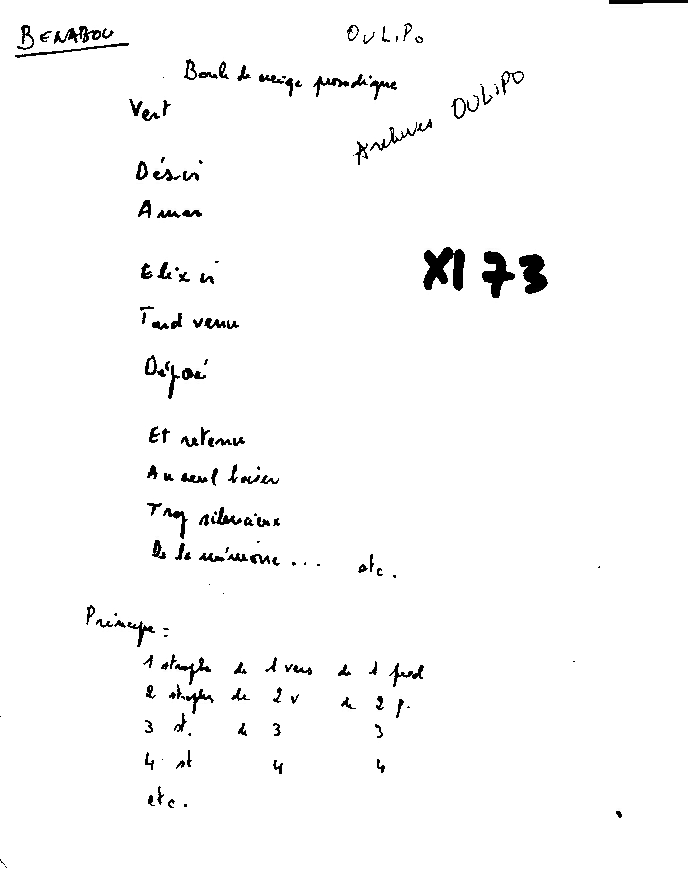 BENABOU
OULIPO
Boule de neige prosodique
Archives OULIPO
Vert
Désir
Amer
XI 73
Elixir
Tard venu
Déposé
Et retenu
Au seul loisir
Trop silencieux
De la mémoire... etc.
Principe =
1 strophe de 1 vers de 1 pied
2 strophes de 2 v de 2 p.
3 st. de 3 3
4 st 4 4
etc.